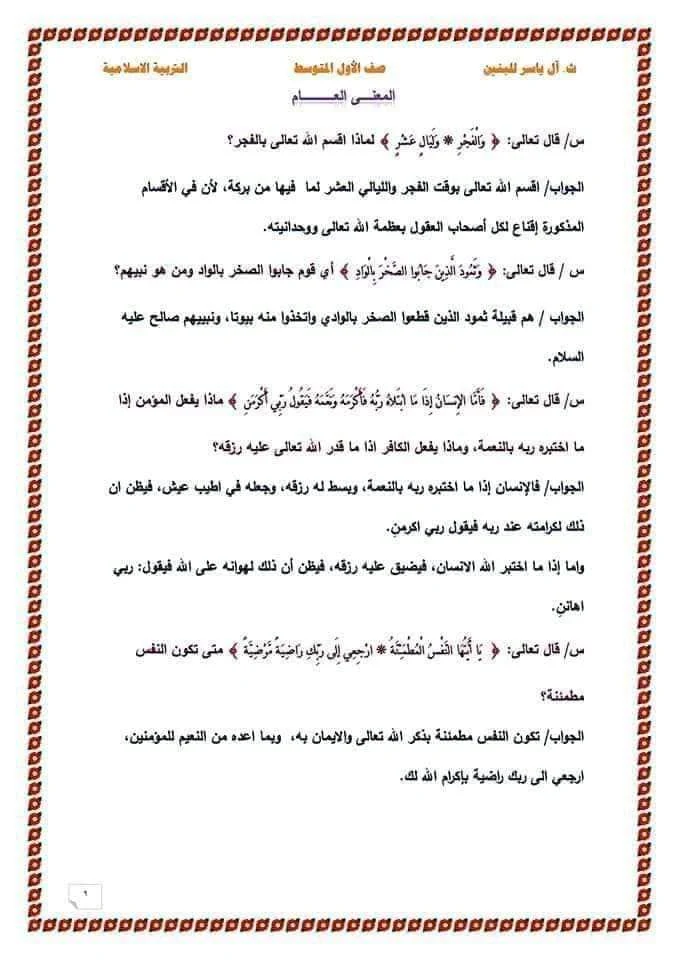 ث. آل ياسر للبنين صف الأول المتوسط التربية الاسلامية
المعنى العام
س/ قال تعالى: ﴿ وَالْفَجْرِ * وَلَيَالٍ عَشْرٍ ﴾ لماذا اقسم الله تعالى بالفجر؟
الجواب/ اقسم الله تعالى بوقت الفجر والليالي العشر لما فيها من بركة، لأن في الأقسام
المذكورة إقناع لكل أصحاب العقول بعظمة الله تعالى ووحدانيته.
س / قال تعالى: ﴿ وَثَمُودَ الَّذِينَ جَابُوا الصَّخْرَ بِالْوَادِ ﴾ أي قوم جابوا الصخر بالواد ومن هو نبيهم؟
الجواب / هم قبيلة ثمود الذين قطعوا الصخر بالوادي واتخذوا منه بيوتا، ونبييهم صالح عليه
السلام.
س/ قال تعالى: ﴿ فَأَمَّا الْإِنسَانُ إِذَا مَا ابْتَلَاهُ رَبُّهُ فَأَكْرَمَهُ وَنَعَّمَهُ فَيَقُولُ رَبِّي أَكْرَمَنِ ﴾ ماذا يفعل المؤمن إذا
ما اختبره ربه بالنعمة، وماذا يفعل الكافر اذا ما قدر الله تعالى عليه رزقه؟
الجواب/ فالإنسان إذا ما اختبره ربه بالنعمة، وبسط له رزقه، وجعله في اطيب عيش، فيظن ان
ذلك لكرامته عند ربه فيقول ربي اكرمنِ.
واما إذا ما اختبر الله الانسان، فيضيق عليه رزقه، فيظن أن ذلك لهوانه على الله فيقول: ربي
اهاننِ.
س/ قال تعالى: ﴿ يَا أَيَّتُهَا النَّفْسُ الْمُطْمَئِنَّةُ * ارْجِعِي إِلَى رَبِّكِ رَاضِيَةً مَّرْضِيَّةً ﴾ متى تكون النفس
مطمئنة؟
الجواب/ تكون النفس مطمئنة بذكر الله تعالى والايمان به، وبما اعده من النعيم للمؤمنين،
ارجعي الى ربك راضية بإكرام الله لك.
٦